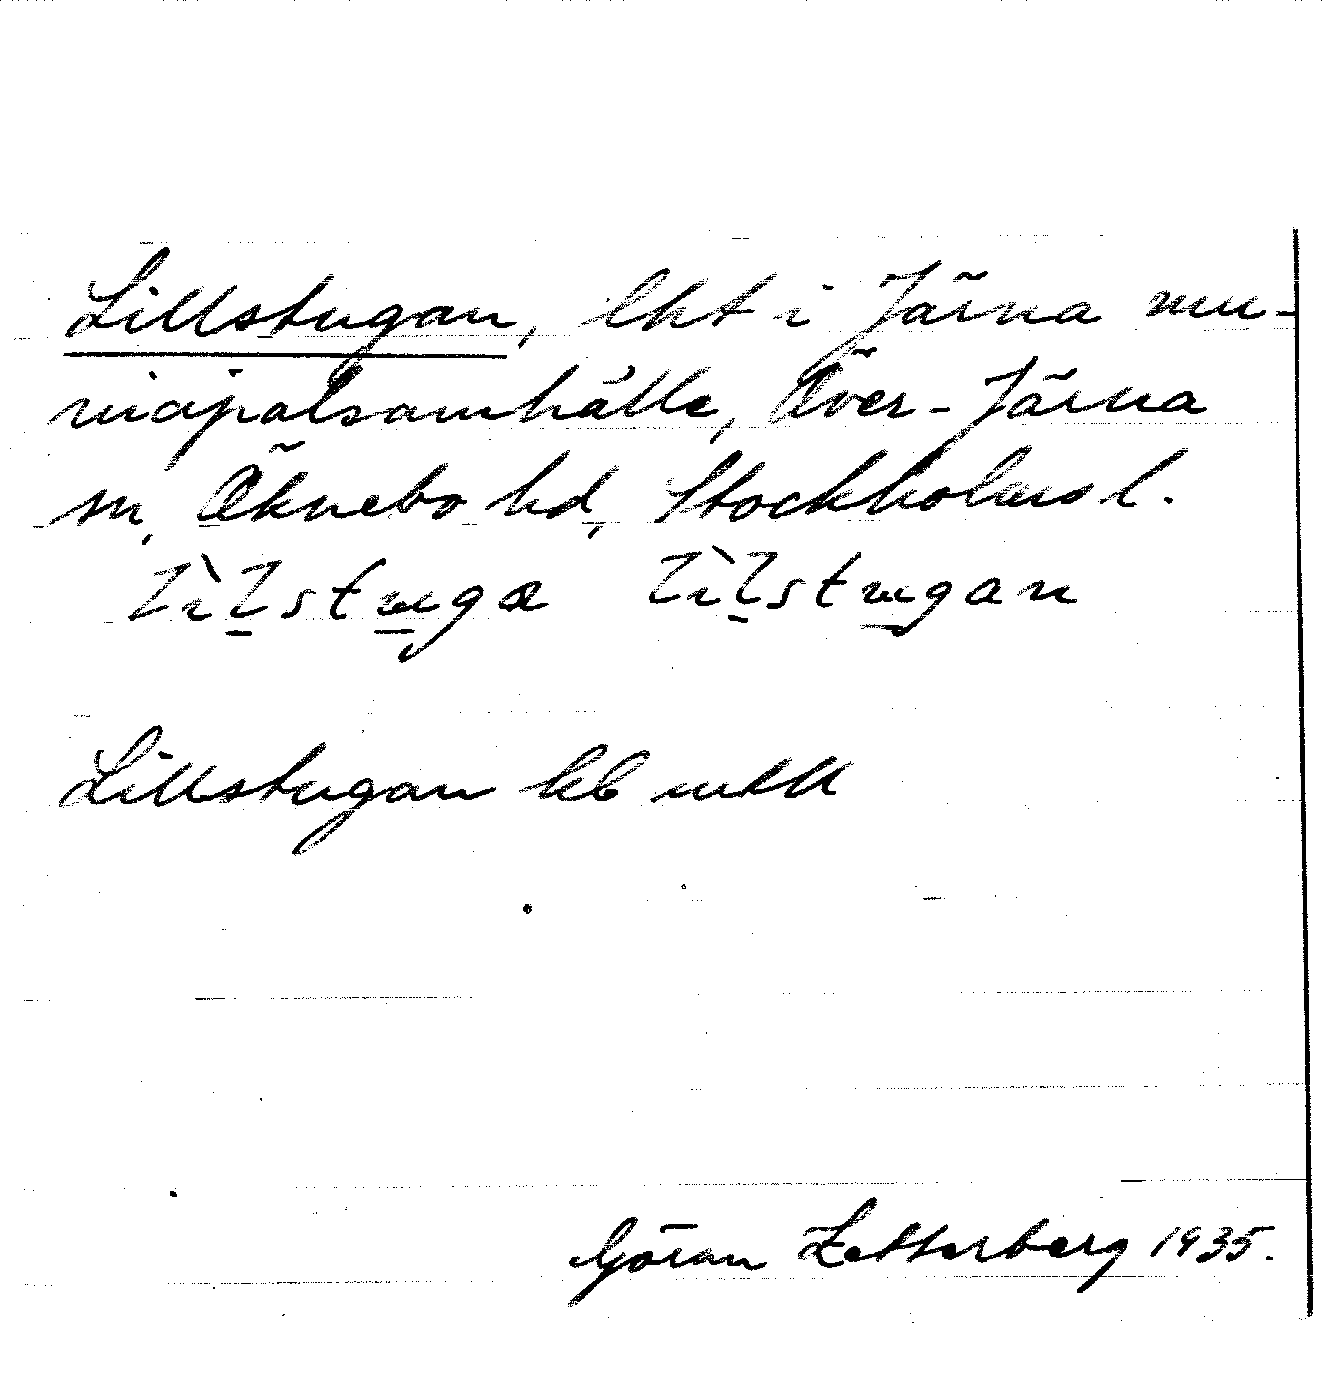 Lillstugan, lht i Järna mu-
nicipalsamhälle, Över-Järna
sn, Öknebo hd, Stockholms l.
Lìlstuga Lìlstugan
Lillstugan hb
Göran Zetterberg 1935.